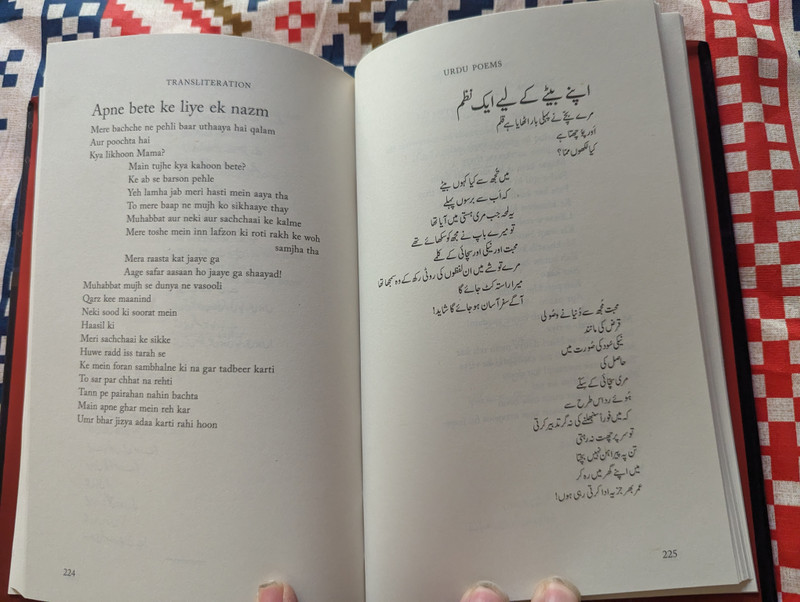 TRANSLITERATION
Apne bete ke liye ek nazm
Mere bachche ne pehli baar uthaaya hai qalam
Aur poochta hai
Kya likhoon Mama?
Main tujhe kya kahoon bete?
Ke ab se barson pehle
Yeh lamha jab meri hasti mein aaya tha
To mere baap ne mujh ko sikhaaye thay
Muhabbat aur neki aur sachchaai ke kalme
Mere toshe mein inn lafzon ki roti rakh ke woh
samjha tha
Mera raasta kat jaaye ga
Aage safar aasaan ho jaaye ga shaayad!
Muhabbat mujh se dunya ne vasooli
Qarz kee maanind
Neki sood ki soorat mein
Haasil ki
Meri sachchaai ke sikke
Huwe radd iss tarah se
Ke mein foran sambhalne ki na gar tadbeer karti
To sar par chhat na rehti
Tann pe pairahan nahin bachta
Main apne ghar mein reh kar
Umr bhar jizya adaa karti rahi hoon
224
URDU POEMS
اپنے بیٹے کے لیے ایک نظم
مرے بچّے نے پہلی بار اٹھایا ہے قلم
اور پوچھتا ہے
کیا لکھوں ممّا؟
میں تجھ سے کیا کہوں بیٹے
کہ اب سے برسوں پہلے
یہ لمحہ جب مری ہستی میں آیا تھا
تو میرے باپ نے مجھ کو سکھائے تھے
محبت اور نیکی اور سچائی کے کلمے
مرے توشے میں ان لفظوں کی روٹی رکھ کے وہ سمجھا تھا
میرا راستہ کٹ جائے گا
آگے سفر آسان ہو جائے گا شاید!
محبت مُجھ سے دُنیا نے وصُولی
قرض کی مانند
نیکی سُود کی صُورت میں
حاصل کی
مری سچائی کے سکّے
ہُوئے رد اس طرح سے
کہ میں فوراً سنبھلنے کی نہ گر تدبیر کرتی
تو سر پر چھت نہ رہتی
تن پہ پیراہن نہیں بچتا
میں اپنے گھر میں رہ کر
عمر بھر جزیہ ادا کرتی رہی ہوں!
225